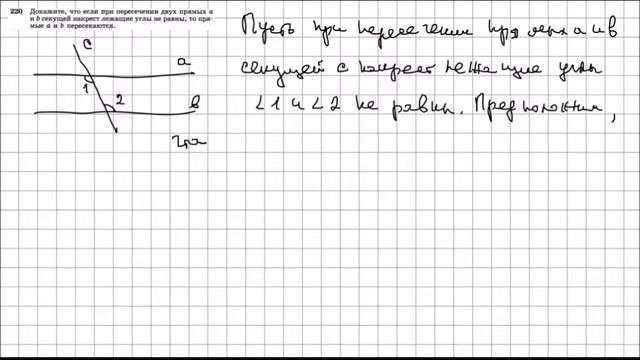 220 Докажите, что если при пересечении двух прямых a
и b секущей накрест лежащие углы не равны, то пря-
мые a и b пересекаются.
c
a
1
2
b
Пусть при пересечении прямых a и b
секущей c накрест лежащие углы
∠1 и ∠2 не равны. Предположим,
что